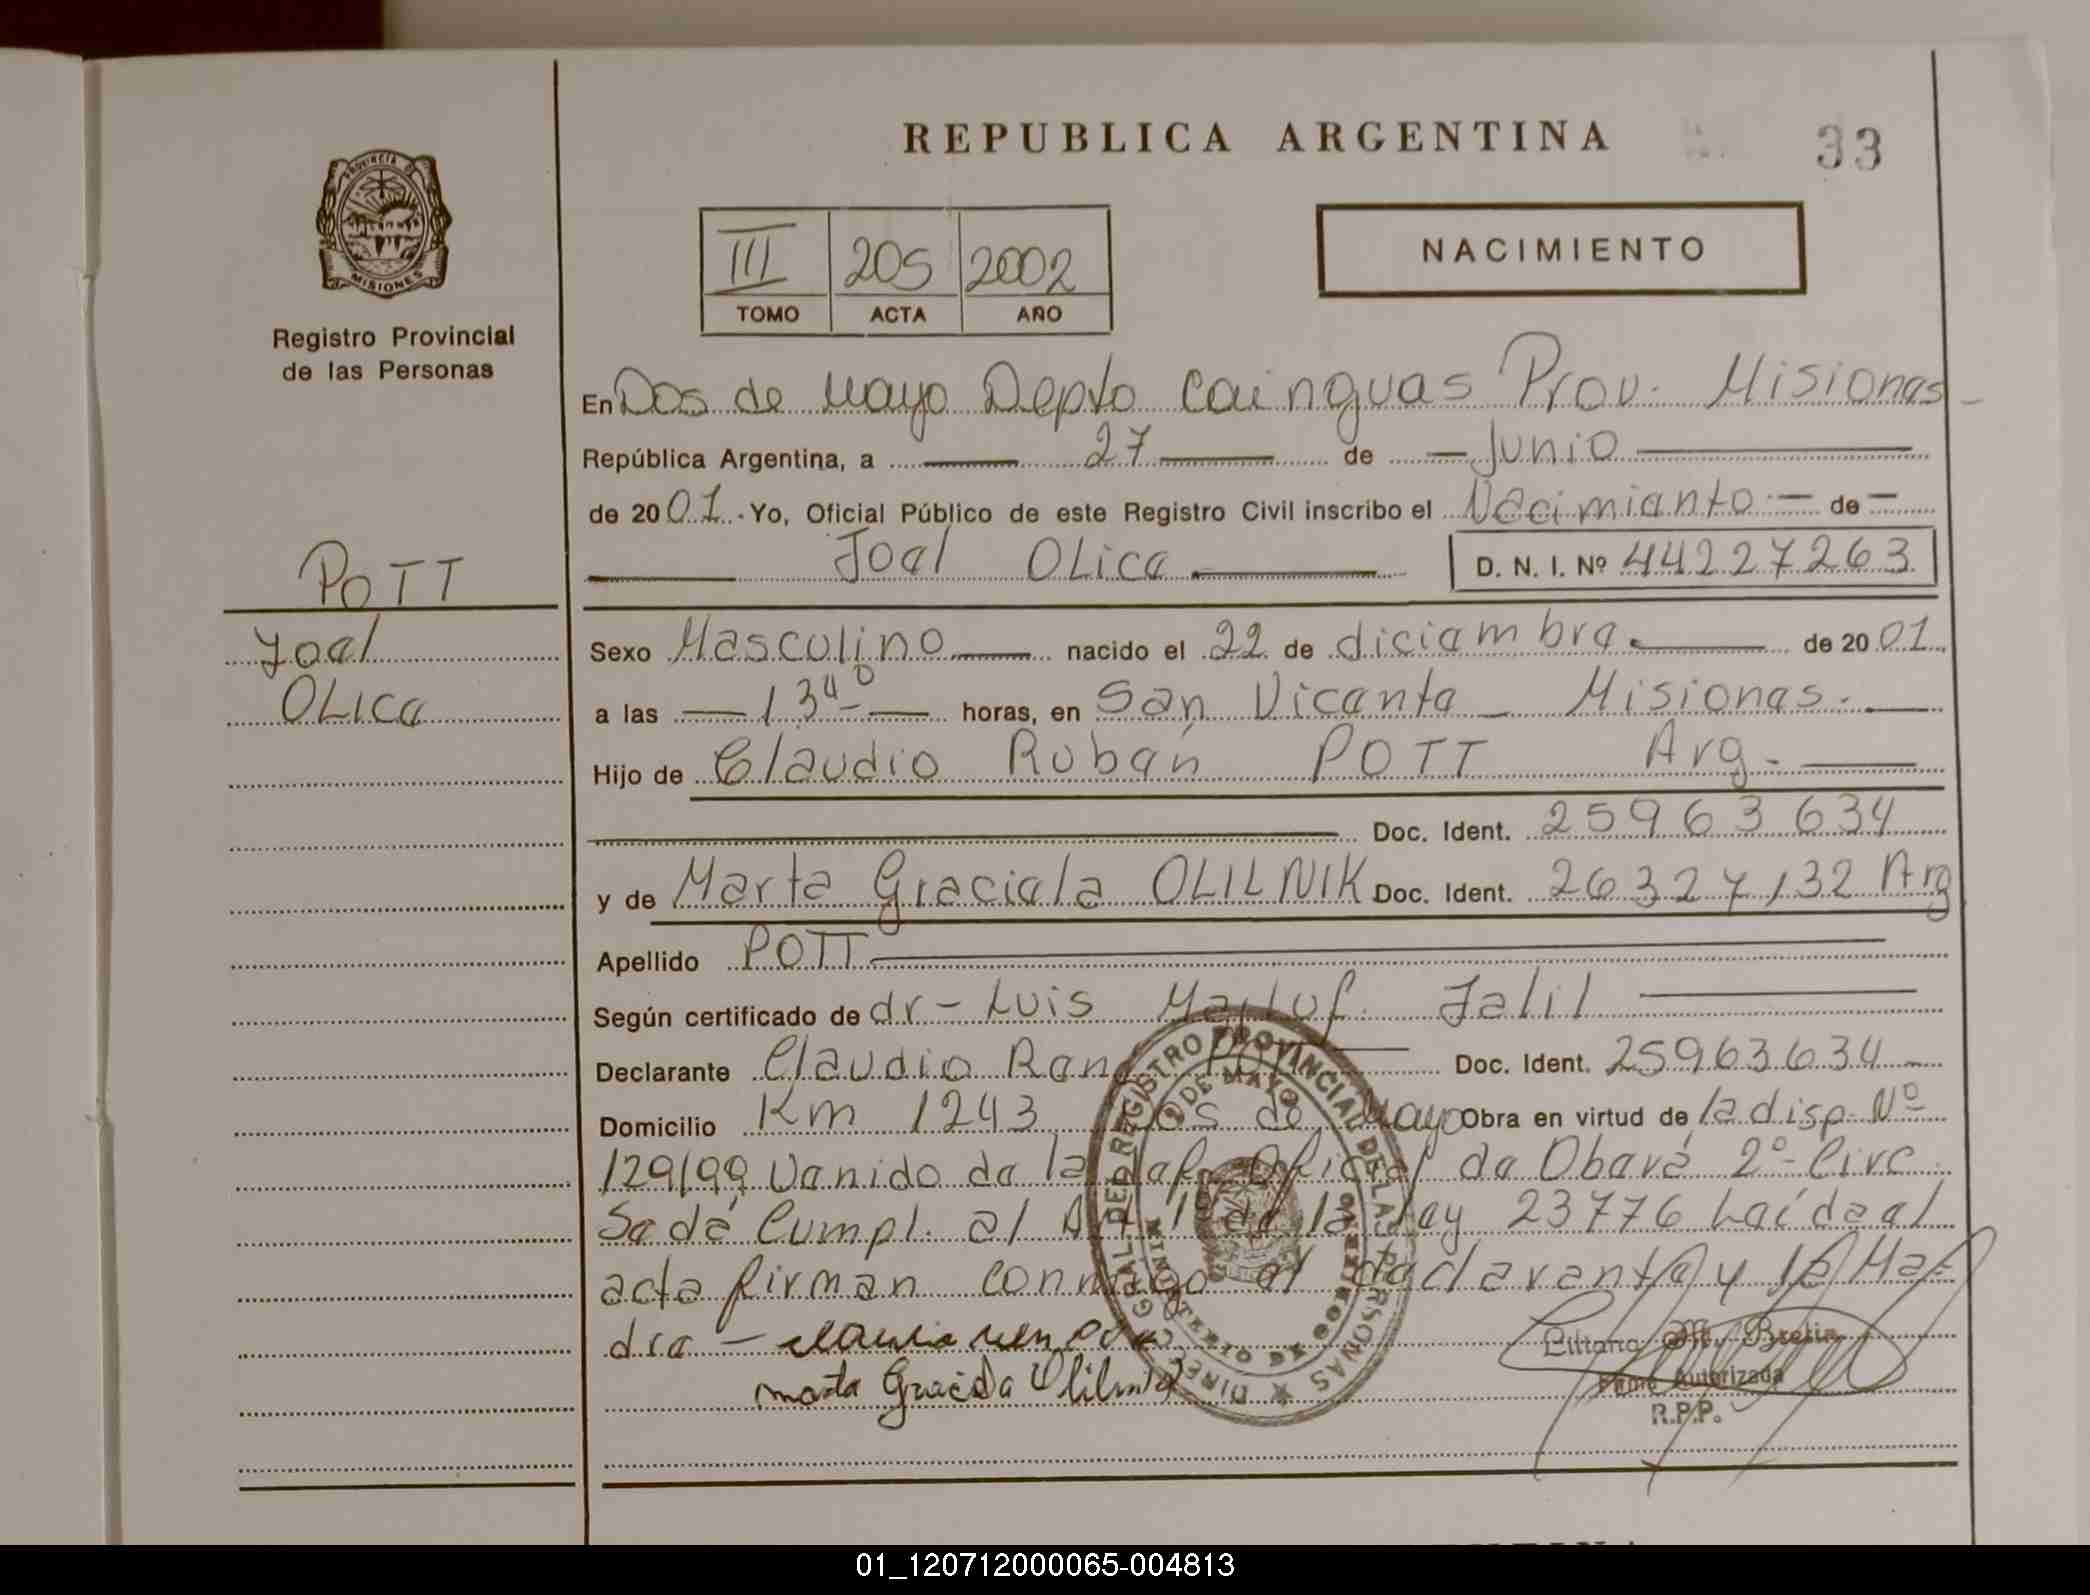 REPUBLICA ARGENTINA
33
PROVINCIA D
MISIONES
Registro Provincial
de las Personas
III 205 2002
TOMO ACTA AÑO
NACIMIENTO
En Dos de Mayo Depto Cainguas Prov. Misiones
República Argentina, a 27 de Junio
de 2001. Yo, Oficial Público de este Registro Civil inscribo el Nacimiento de
Joel OLice D. N. I. Nº 44227263
POTT
Joel
OLice
Sexo Masculino nacido el 22 de diciembre de 2001
a las 13 40 horas, en San Vicente Misiones.
Hijo de Claudio Ruben POTT Arg.
Doc. Ident. 25963634
y de Marta Graciela OLILNIK Doc. Ident. 26327132 Arg
Apellido POTT
Según certificado de dr - Luis Jalil
Declarante Claudio Doc. Ident. 25963634
Domicilio Km 1243 Dos de Mayo Obra en virtud de la disp. Nº
129/99 Venido de la Oficial de Obera 2º Circ
Se da Cumpl. al Art 1º de la Ley 23776 Leída el
acta firman conmigo el declarante y la Ma-
dre -
Marta Graciela Olilnik
DIREC. GRAL. DEL REGISTRO PROVINCIAL DE LAS PERSONAS
2 DE MAYO
MINISTERIO DE GOBIERNO
Liliana M.
Firma Autorizada
R.P.P.
01_120712000065-004813